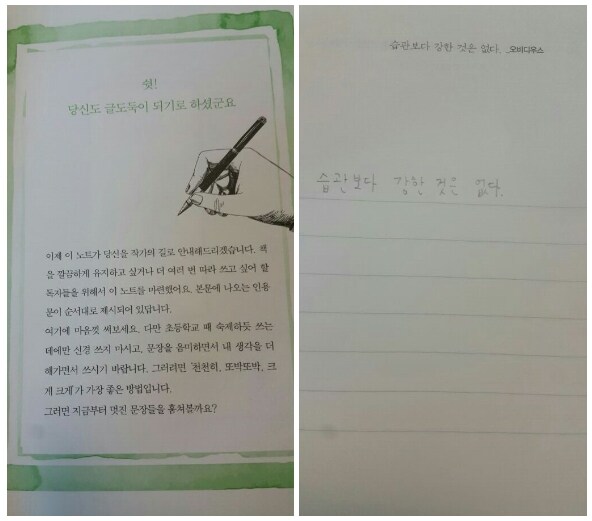 쉿!
당신도 글도둑이 되기로 하셨군요
이제 이 노트가 당신을 작가의 길로 안내해드리겠습니다. 책
을 깔끔하게 유지하고 싶거나 더 여러 번 따라 쓰고 싶어 할
독자들을 위해서 이 노트를 마련했어요. 본문에 나오는 인용
문이 순서대로 제시되어 있답니다.
여기에 마음껏 써보세요. 다만 초등학교 때 숙제하듯 쓰는
데에만 신경 쓰지 마시고, 문장을 음미하면서 내 생각을 더
해가면서 쓰시기 바랍니다. 그러려면 '천천히, 또박또박, 크
게 크게'가 가장 좋은 방법입니다.
그러면 지금부터 멋진 문장들을 훔쳐볼까요?
습관보다 강한 것은 없다. _오비디우스
습관보다 강한 것은 없다.